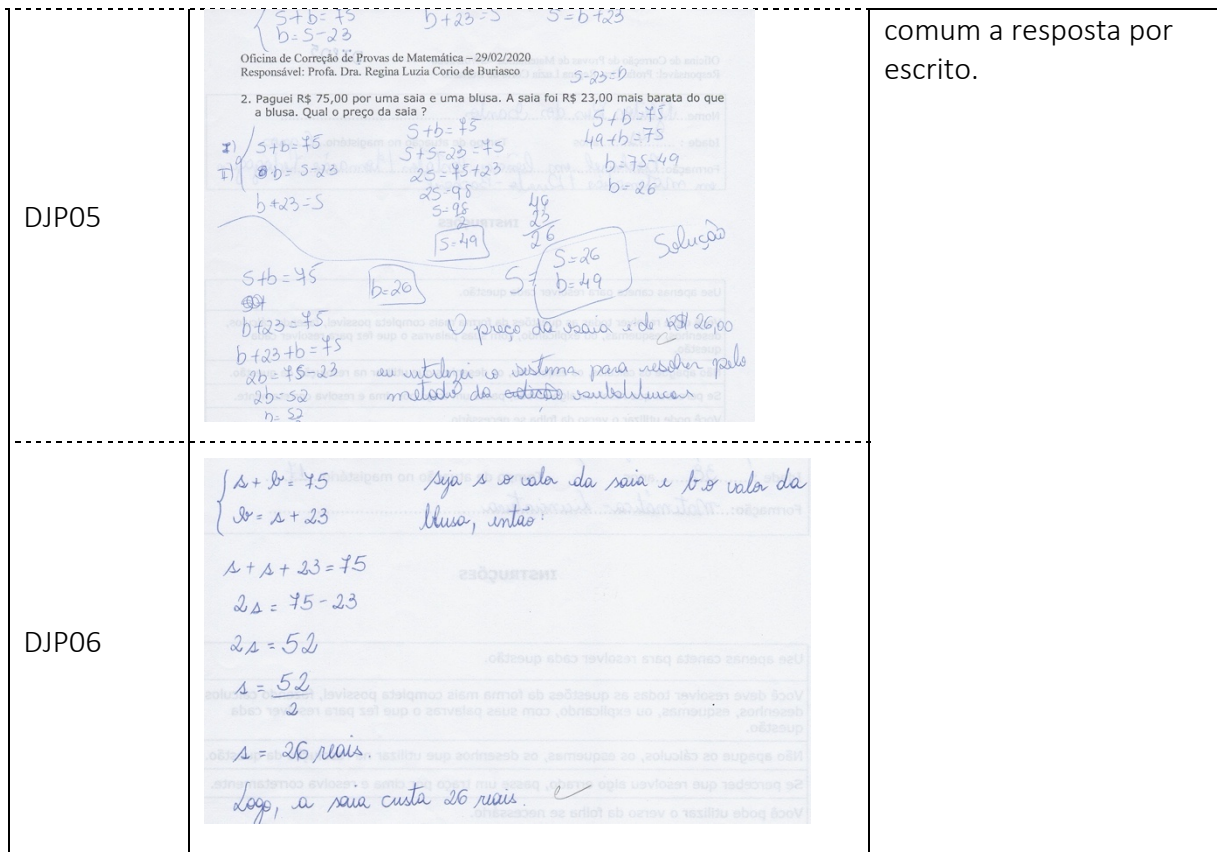 DJP05
S+b=75
b=S-23
b+23=S
S=b+23
Oficina de Correção de Provas de Matemática – 29/02/2020
Responsável: Profa. Dra. Regina Luzia Corio de Buriasco
S-23=b
2. Paguei R$ 75,00 por uma saia e uma blusa. A saia foi R$ 23,00 mais barata do que
a blusa. Qual o preço da saia ?
I) S+b=75
II) b=S-23
b+23=S
S+b=75
S+S-23=75
2S=75+23
2S=98
S=98
2
S=49
S+b=75
49+b=75
b=75-49
b=26
49
23
26
S=26
b=49
Solução
S+b=75
b+23=75
b+23+b=75
2b=75-23
2b=52
b=52
b=26
O preço da saia e de R$ 26,00
eu utilizei o sistema para resolver pelo
metodo da
comum a resposta por
escrito.
DJP06
s+b=75
b=s+23
Seja s o valor da saia e b o valor da
blusa, então:
s+s+23=75
2s=75-23
2s=52
s=52
2
s=26 reais.
Logo, a saia custa 26 reais.